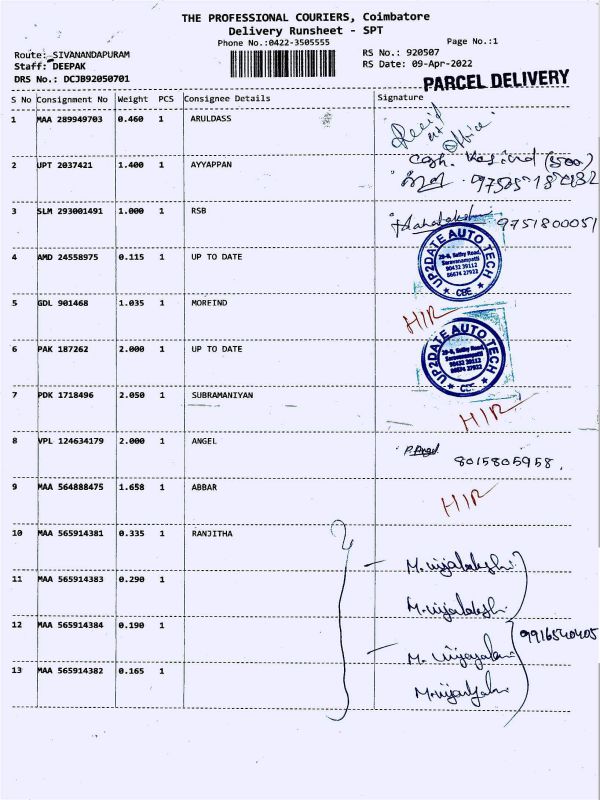 THE PROFESSIONAL COURIERS, Coimbatore
Delivery Runsheet - SPT
Phone No.:0422-3505555
Page No.:1
Route: SIVANANDAPURAM
RS No.: 920507
Staff: DEEPAK
RS Date: 09-Apr-2022
DRS No.: DCJB92050701
PARCEL DELIVERY
S No Consignment No Weight PCS Consignee Details Signature
1 MAA 289949703 0.460 1 ARULDASS
at office
2 UPT 2037421 1.400 1 AYYAPPAN
3 SLM 293001491 1.000 1 RSB 9751800051
4 AMD 24558975 0.115 1 UP TO DATE
UP2DATE AUTO TECH
Saravanampatti
90432 39112
86674 27922
CBE
5 GDL 901468 1.035 1 MOREIND H/R
6 PAK 187262 2.000 1 UP TO DATE
UP2DATE AUTO TECH
Saravanampatti
90432 39112
86674 27922
CBE
7 PDK 1718496 2.050 1 SUBRAMANIYAN H/R
8 VPL 124634179 2.000 1 ANGEL P. Angel
8015805958.
9 MAA 564888475 1.658 1 ABBAR H/R
10 MAA 565914381 0.335 1 RANJITHA
11 MAA 565914383 0.290 1
12 MAA 565914384 0.190 1 9916540405
13 MAA 565914382 0.165 1